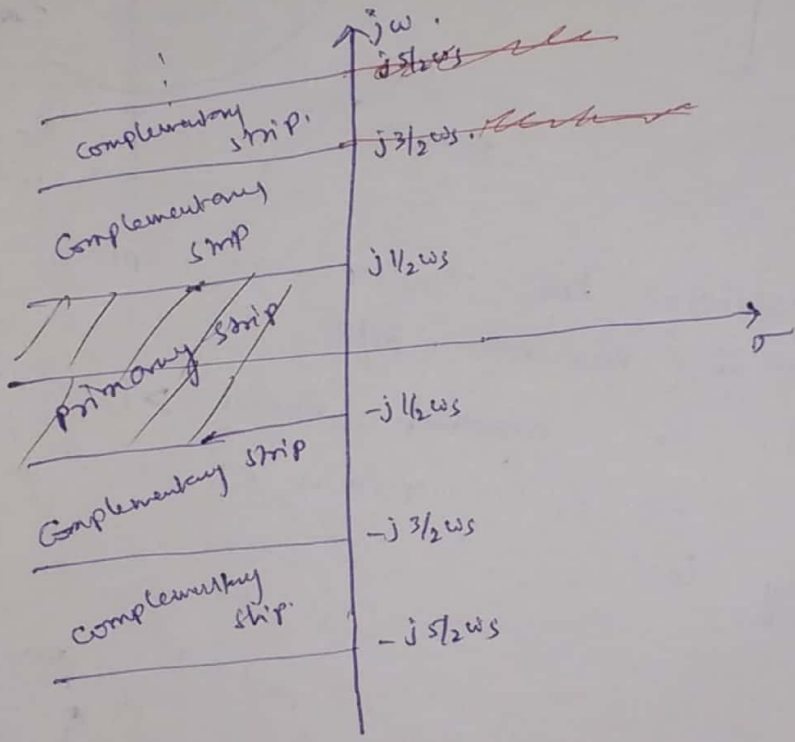 jω
j5/2ωs
complementary
strip.
j3/2ωs.
Complementary
strip
j1/2ωs
primary strip
σ
-j1/2ωs
Complementary strip
-j3/2ωs
complementary
strip.
-j5/2ωs